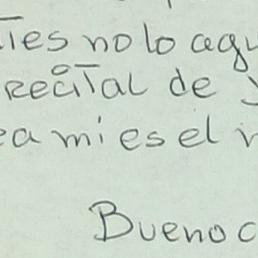 ties no lo agu
recital de
ea mi es el
Bueno c